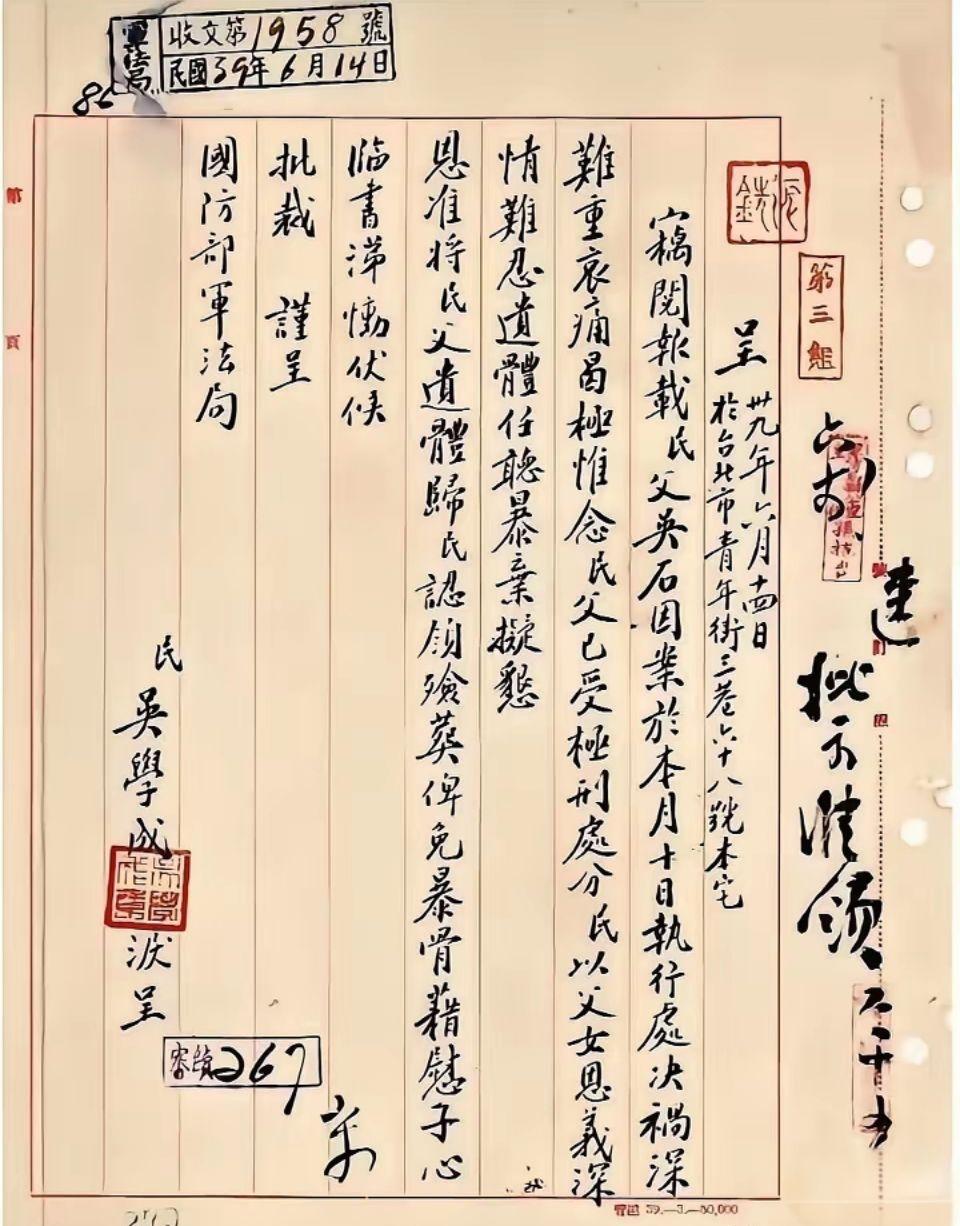 軍法局
收文第1958號
民國39年6月14日
86
第三組
呈 卅九年六月十四日
於台北市青年街三巷六十八號本宅
竊閱報載民父吳石因案於本月十日執行處决禍深
難重哀痛曷極惟念民父已受極刑處分民以父女恩義深
情難忍遺體任聽暴棄擬懇
恩准將民父遺體歸民認領殮葬俾免暴骨藉慰子心
臨書涕慟伏候
批裁 謹呈
國防部軍法局
民 吳學成 淚呈
267
批示准領
第
頁
39.—3.—50,000